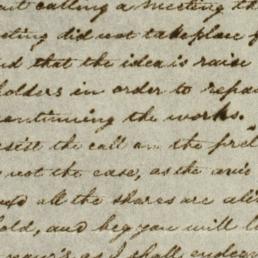 calling a meeting th
eting did not take place f
nd that the idea is raise
holders in order to repa
continuing the works.
esist the call on the prel
not the case, as the
all the shares are
old, and beg you will l
your's as I shall endeav